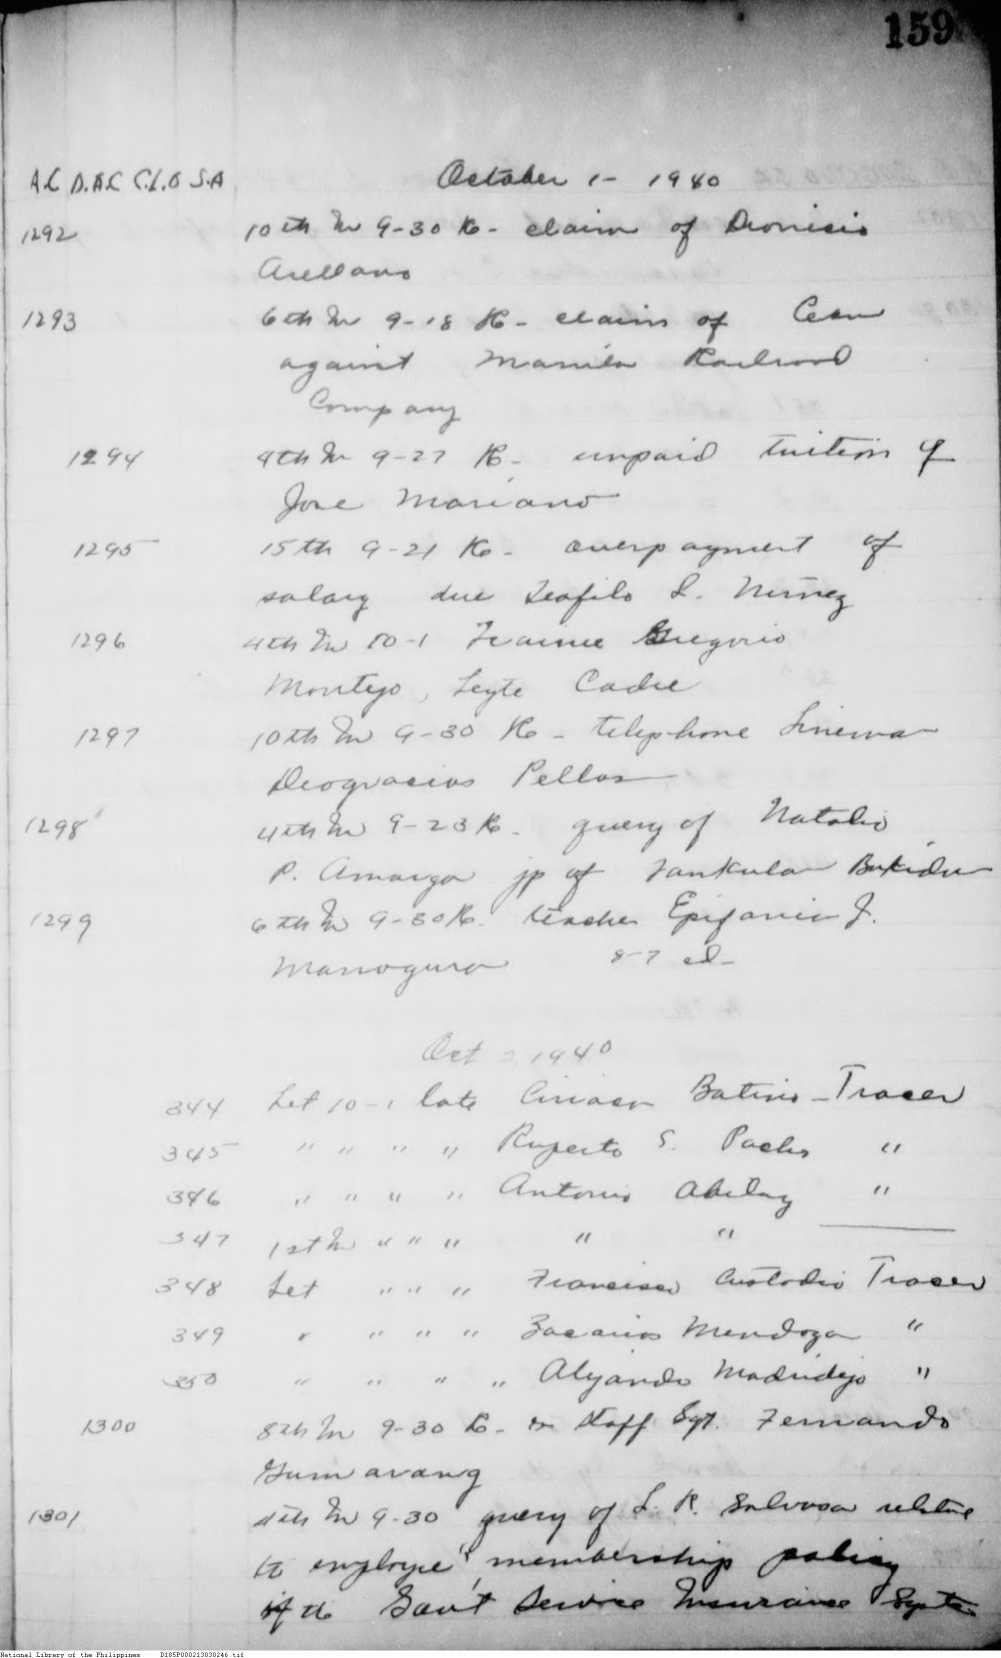 159
A.C D.A.C C.L.O S.A October 1- 1940
1292 10th In 9-30 Re- claim of Dionisio
Arellano
1293 6th In 9-18 Re- claim of
against Manila Railroad
Company
1294 4th In 9-27 Re- unpaid tuition of
Jose Mariano
1295 15th 9-21 Re- overpayment of
salary due Teofilo S. Nuñez
1296 4th In 10-1 Trainee Gregorio
Montejo, Leyte Cadre
1297 10th In 9-30 Re- telephone Lineman
Deogracias Pellas
1298 4th In 9-23 Re- query of Natalio
P. Amarga jp of Tankulan Bukidn
1299 6th In 9-30 Re. teacher Epifanio J.
Manogura 8-7
Oct 2 1940
344 Let 10-1 late Ciriaco Batino - Tracer
345 " " " " Ruperto S. "
346 " " " " Antonio Abelay "
347 1st In " " " " "
348 Let " " " Francisco Custodio Tracer
349 " " " " Zacarias Mendoza "
350 " " " " Alejandro Madridejo "
1300 8th In 9-30 Re- Staff Sgt. Fernando
Gumavang
1301 4th In 9-30 query of L. R. Salvosa relative
to employe's membership policy
of the Gov't Service Insurance System
National Library of the Philippines D185P000213030246.tif